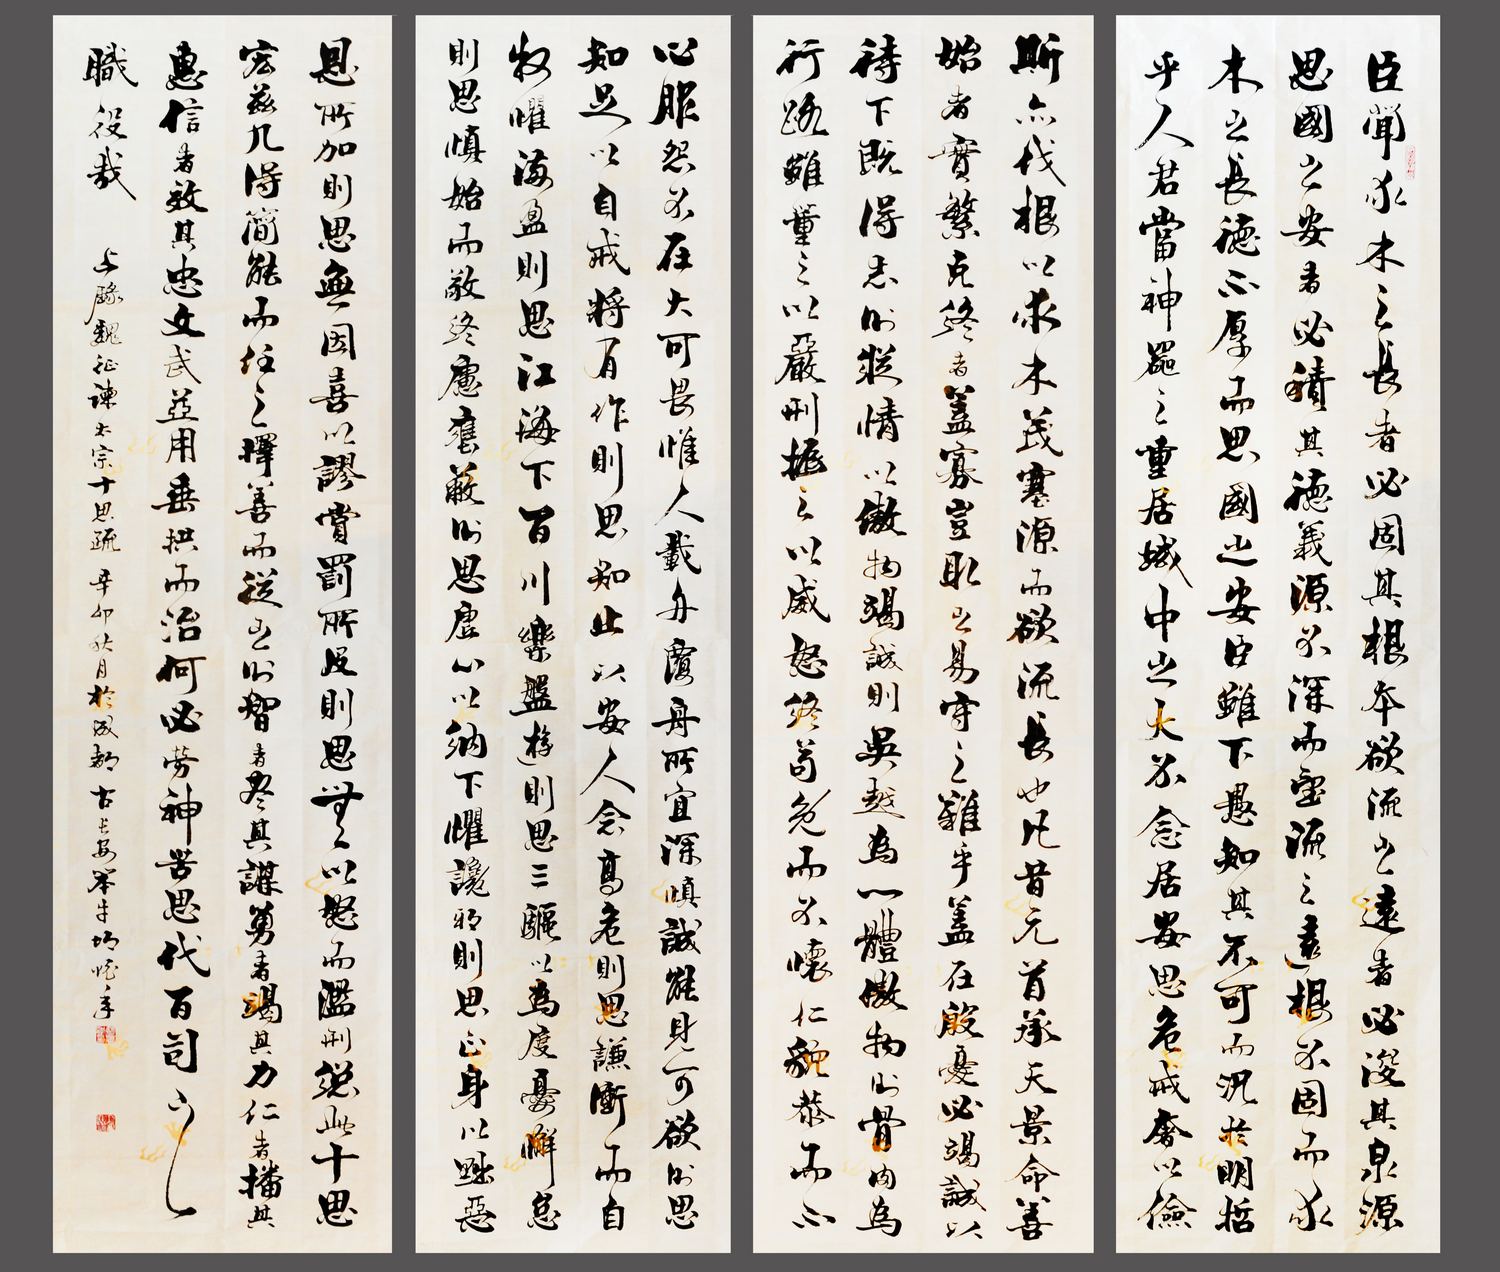 臣聞求木之長者必固其根本欲流之遠者必浚其泉源
思國之安者必積其德義源不深而望流之遠根不固而求
木之長德不厚而思國之安臣雖下愚知其不可而況於明哲
乎人君當神器之重居域中之大不念居安思危戒奢以儉
斯亦伐根以求木茂塞源而欲流長也凡昔元首承天景命善
始者實繁克終者蓋寡豈取之易守之難乎蓋在殷憂必竭誠以
待下既得志則縱情以傲物竭誠則吳越為一體傲物則骨肉為
行路雖董之以嚴刑振之以威怒終苟免而不懷仁貌恭而不
心服怨不在大可畏惟人載舟覆舟所宜深慎誠能見可欲則思
知足以自戒將有作則思知止以安人念高危則思謙衝而自
牧懼滿盈則思江海下百川樂盤遊則思三驅以為度憂懈怠
則思慎始而敬終慮壅蔽則思虛心以納下懼讒邪則思正身以黜惡
恩所加則思無因喜以謬賞罰所及則思無以怒而濫刑總此十思
宏茲九得簡能而任之擇善而從之則智者盡其謀勇者竭其力仁者播其
惠信者效其忠文武並用垂拱而治何必勞神苦思代百司之
職役哉
上錄魏征諫太宗十思疏 辛卯秋月於成都 古長安